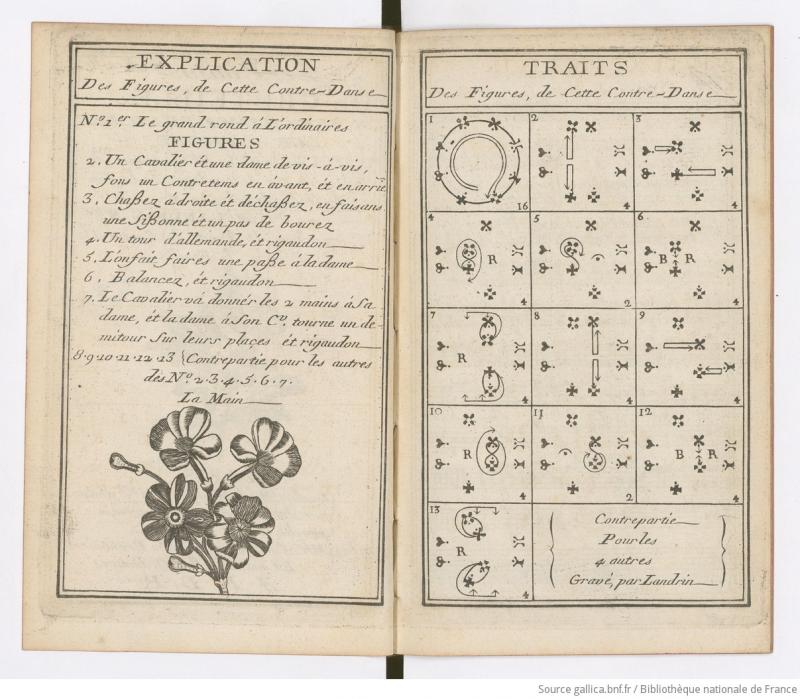 EXPLICATION
Des Figures, de Cette Contre-Danse
N.º 1.er Le grand rond á L'ordinaires
FIGURES
2, Un Cavalier ét une dame de vis-á-vis,
fons un Contretems en ávant, ét en arriè
3, Chaßez á droite ét déchaßez, en faisans
une Sißonne ét un pas de bourez
4, Un tour d'allemande, ét rigaudon
5, L'on fait faires une paße á la dame
6, Balancez, ét rigaudon
7, Le Cavalier vá donnér les 2 mains á Sa
dame, ét la dame á Son C.v. tourne un de-
mitour Sur leurs plaçes ét rigaudon
8·9·10·11·12·13 Contrepartie pour les autres
des N.º 2·3·4·5·6·7·
La Main
TRAITS
Des Figures, de Cette Contre-Danse
1 2 3
16 4 4
4 5 6
R B R
4 2 4
7 8 9
R
4 4 4
10 11 12
R B R
4 2 4
13
R
4
Contrepartie
Pour les
4 autres
Gravé, par Landrin
Source gallica.bnf.fr / Bibliothèque nationale de France